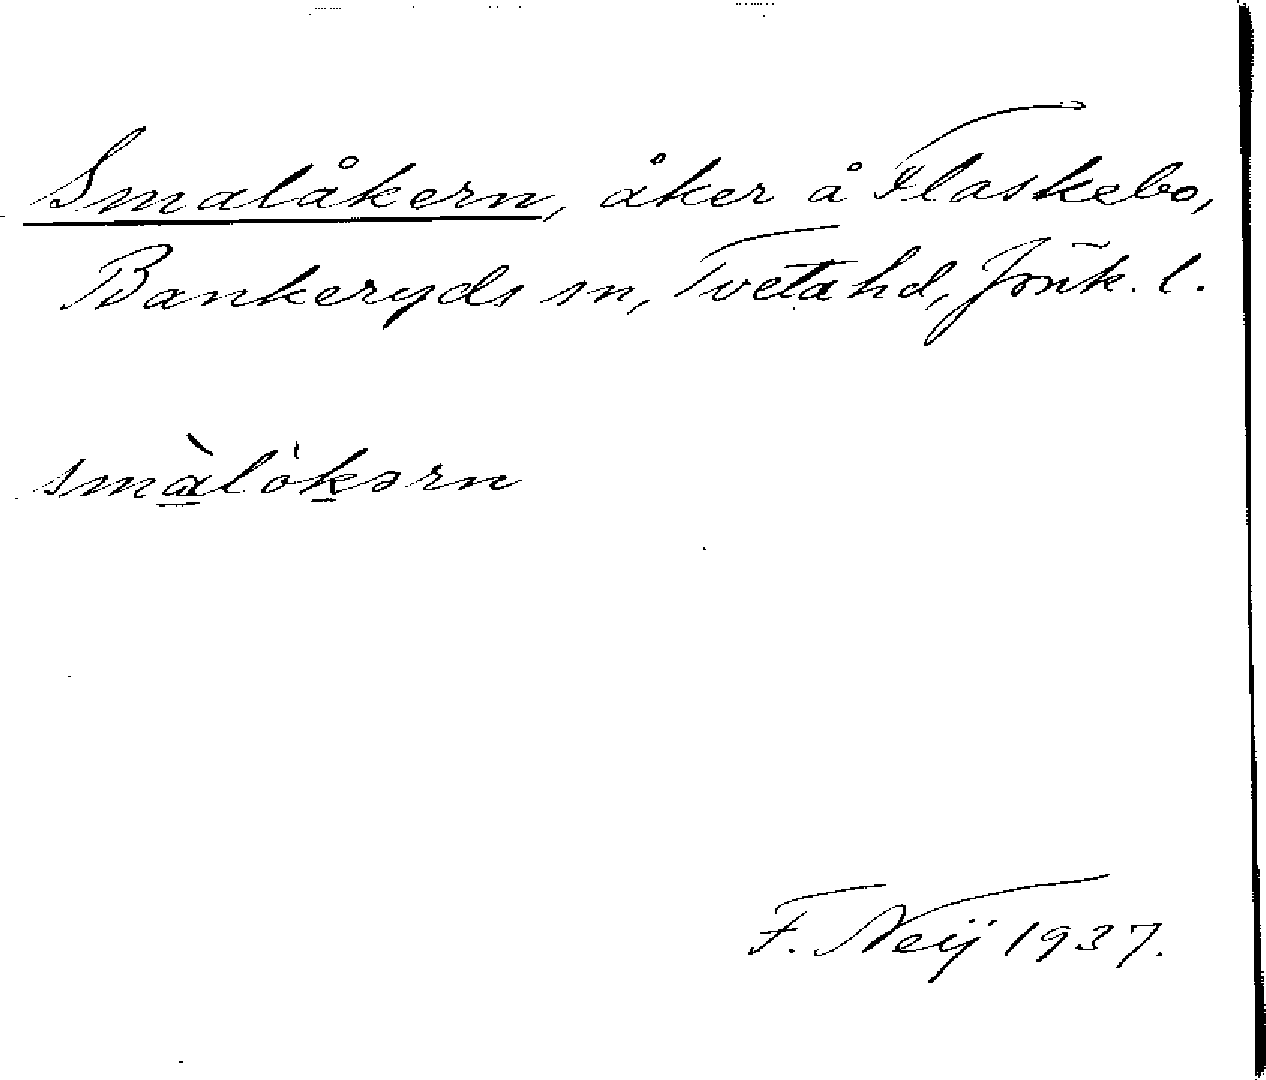 Smalåkern, åker å Flaskebo,
Bankeryds sn, Tveta hd, Jönk. l.
smàlòkərn
F. Neij 1937.